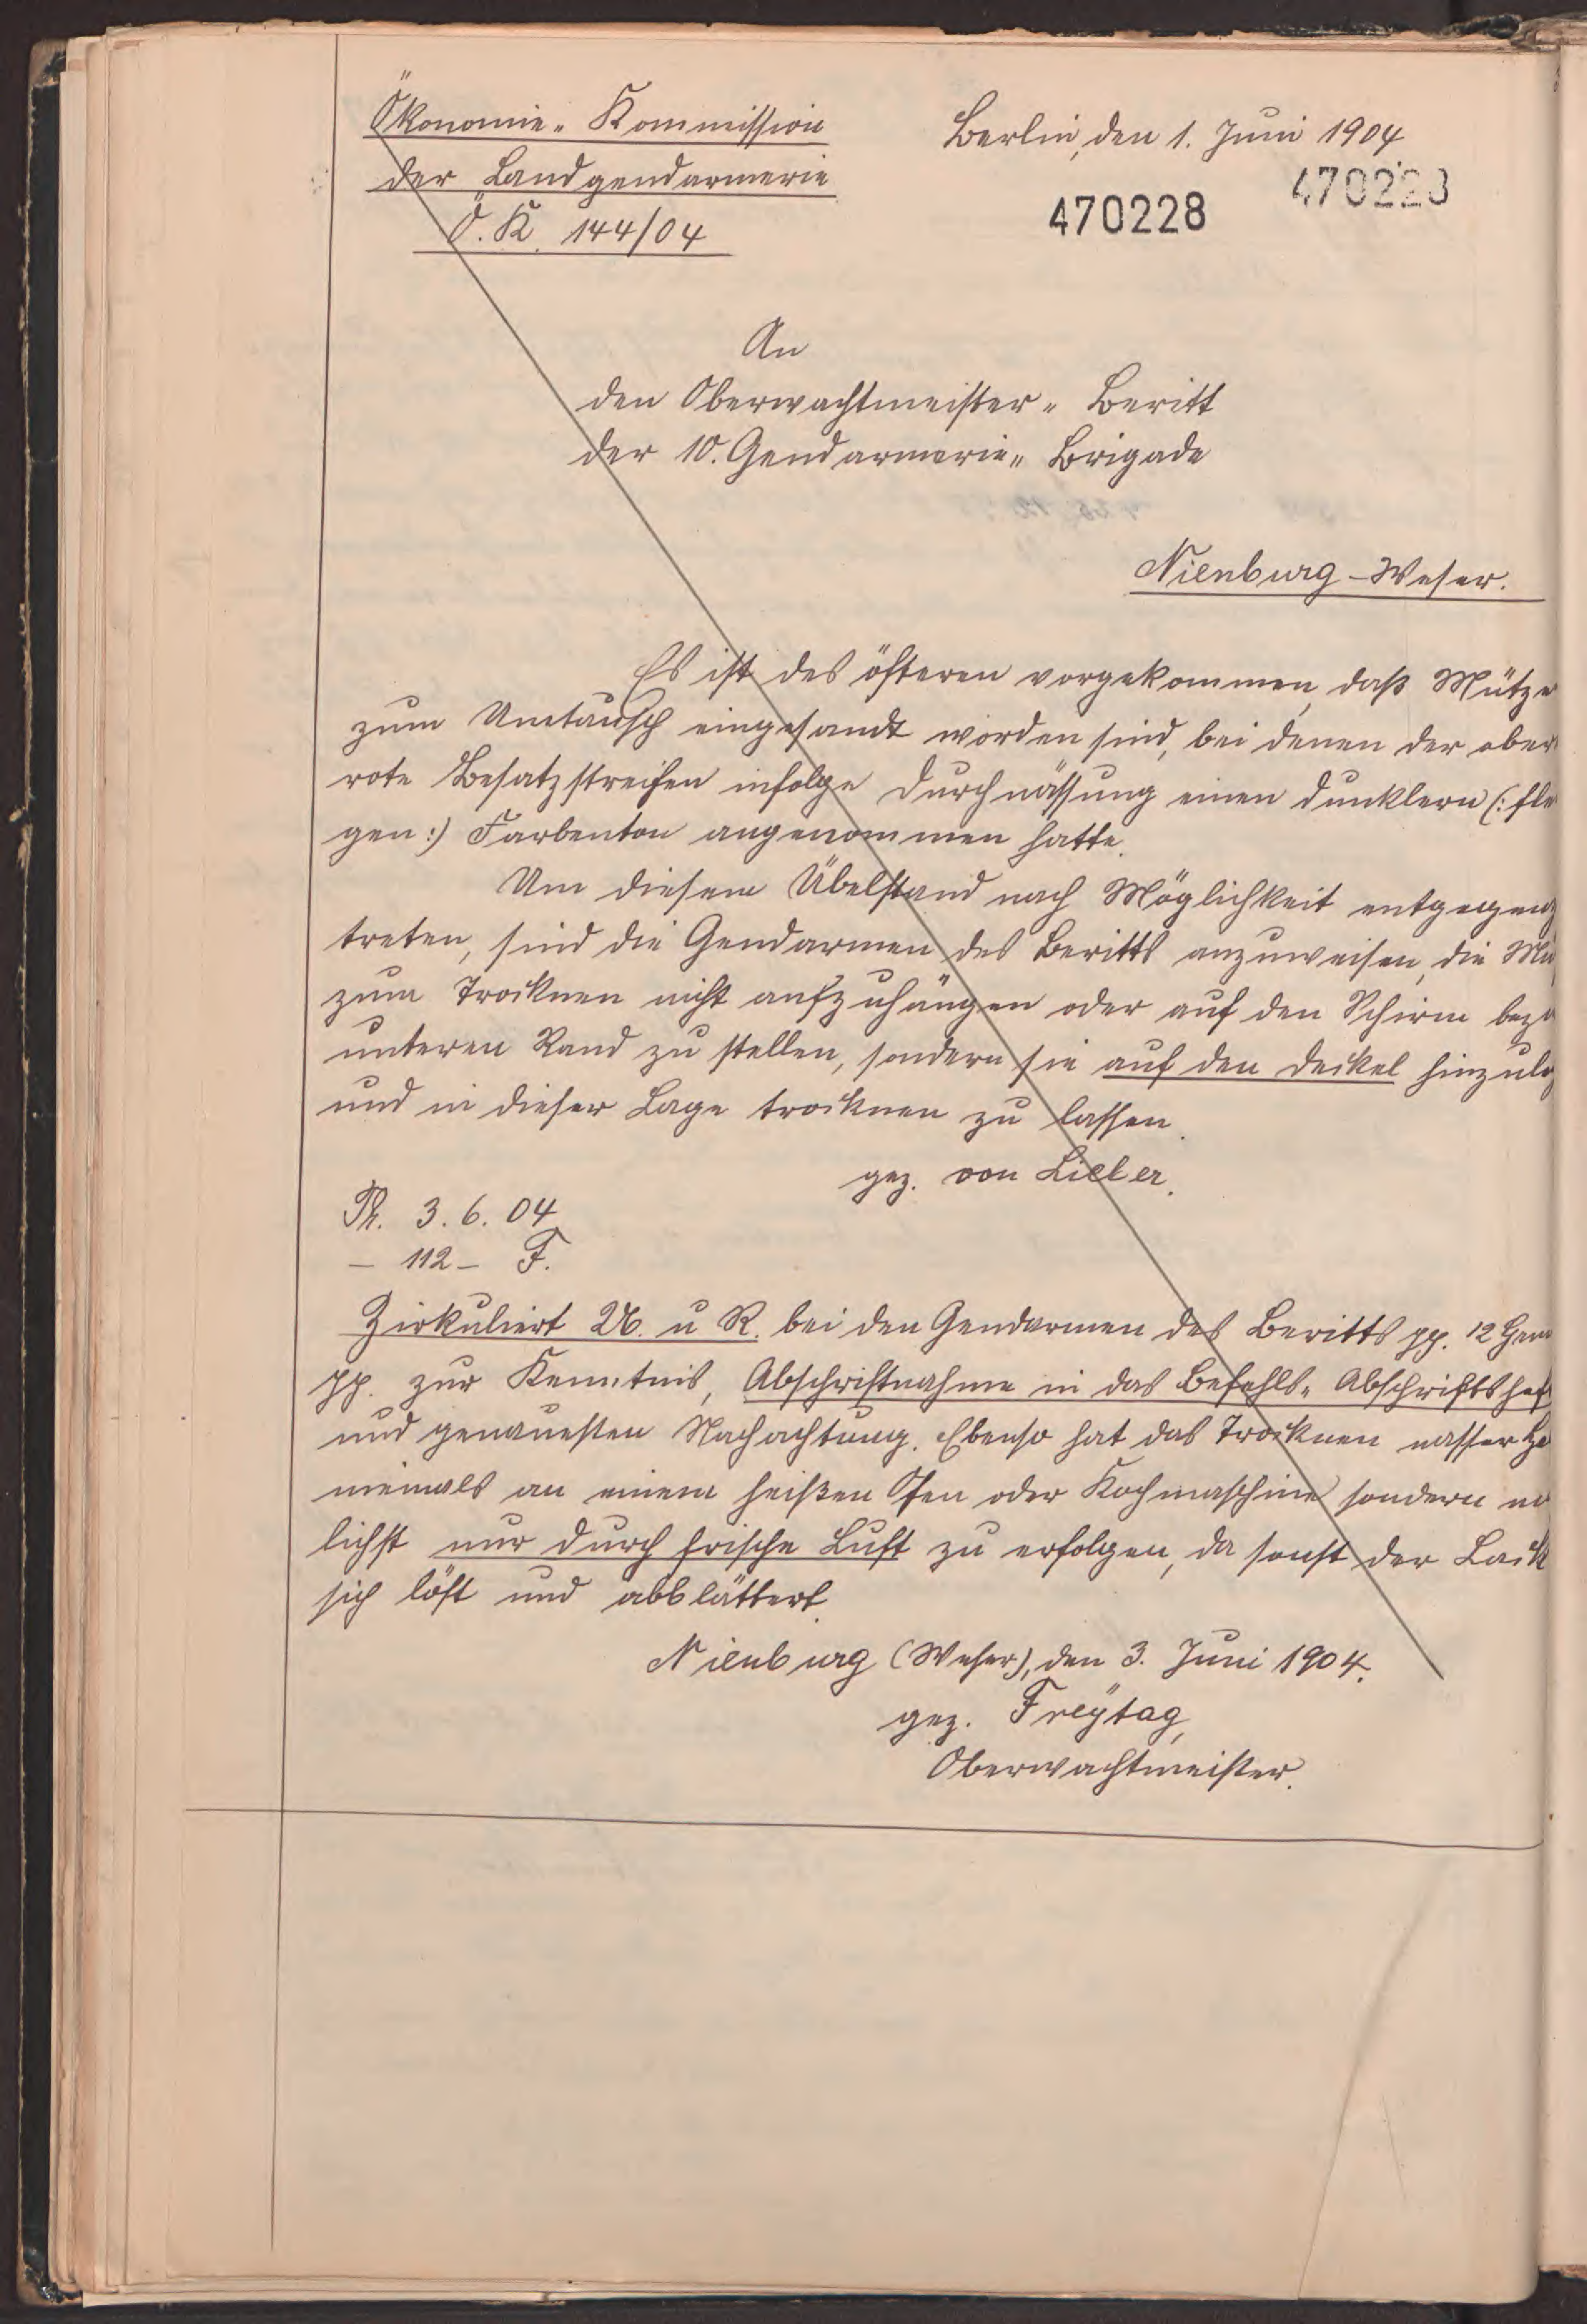 Ökonomie-Kommission
der Landgendarmerie
Ö. K. 144/04
Berlin, den 1. Juni 1904
470228
470228
An
den Oberwachtmeister-Beritt
der 10. Gendarmerie-Brigade
Nienburg-Weser.
Es ist des öfteren vorgekommen, daß Mütze
zum Umtausch eingesandt worden sind, bei denen der ober
rote Besatzstreifen infolge Durchnässung einen dunklern (: fle
gen :) Farbenton angenommen hatte.
Um diesem Übelstand nach Möglichkeit entgegenz
treten, sind die Gendarmen des Beritts anzuweisen, die Mü
zum Trocknen nicht aufzuhängen oder auf den Schirm bez
unteren Rand zu stellen, sondern sie auf den Deckel hinzule
und in dieser Lage trocknen zu lassen.
gez. von Lieber.
Pr. 3. 6. 04
- 112 - F.
Zirkuliert U. u R. bei den Gendarmen des Beritts pp. 12 Gen
pp. zur Kenntnis, Abschriftnahme in das Befehls-Abschriftshef
und genauesten Nachachtung. Ebenso hat das Trocknen nasser He
niemals an einem heißen Ofen oder Kochmaschine sondern
lichst nur durch frische Luft zu erfolgen, da sonst der Lack
sich löst und abblättert.
Nienburg (Weser), den 3. Juni 1904.
gez. Freytag,
Oberwachtmeister.